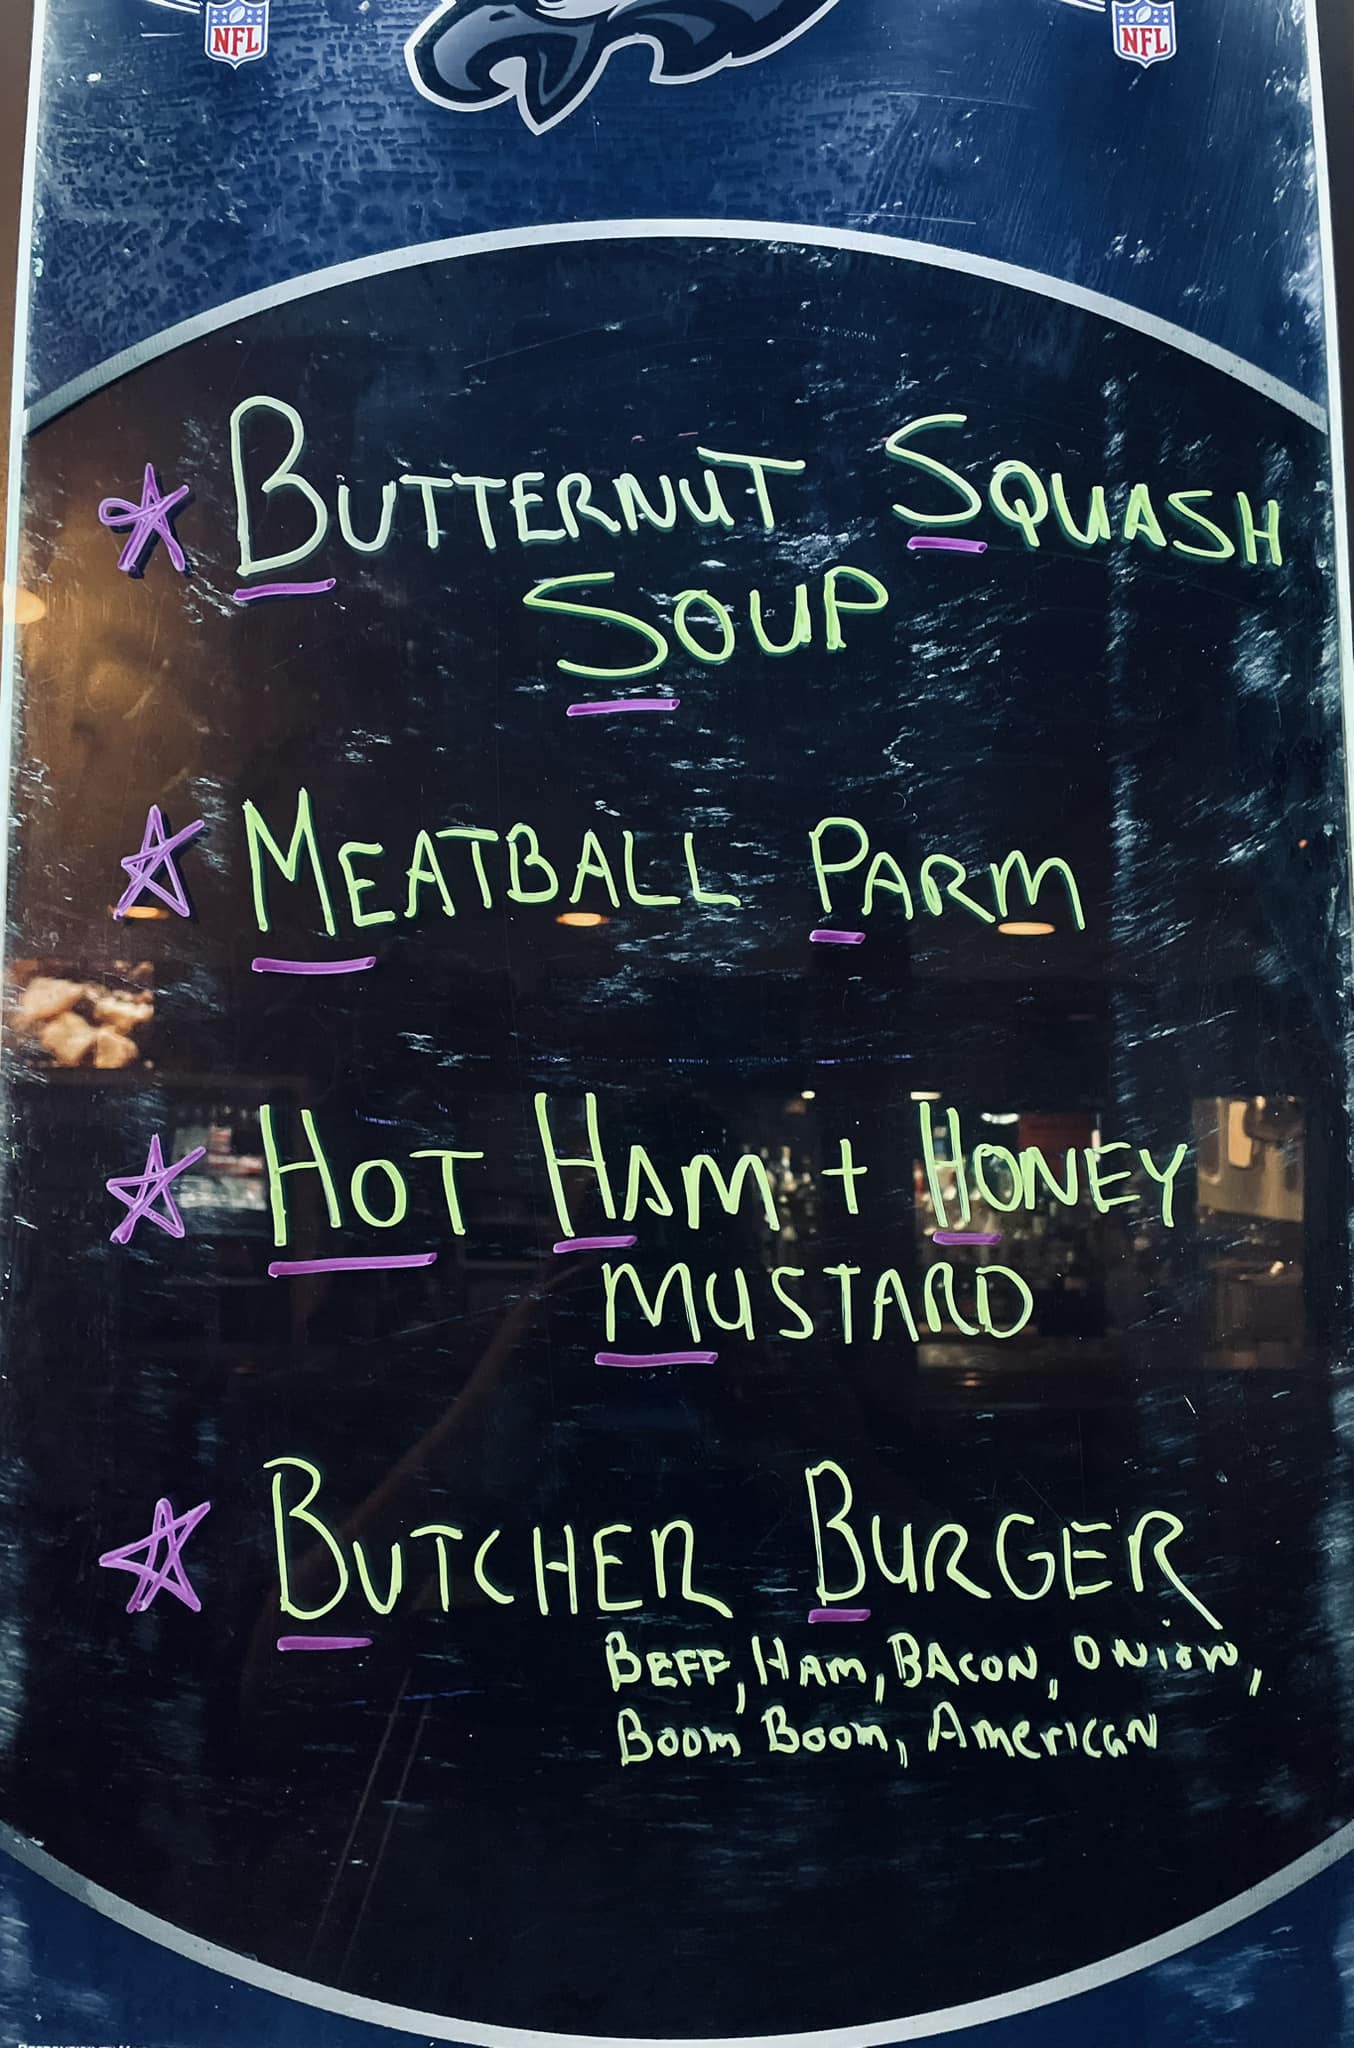 NFL NFL
BUTTERNUT SQUASH
SOUP
MEATBALL PARM
HOT HAM + HONEY
MUSTARD
BUTCHER BURGER
BEFF, HAM, BACON, ONION,
BOOM BOOM, AMERICAN